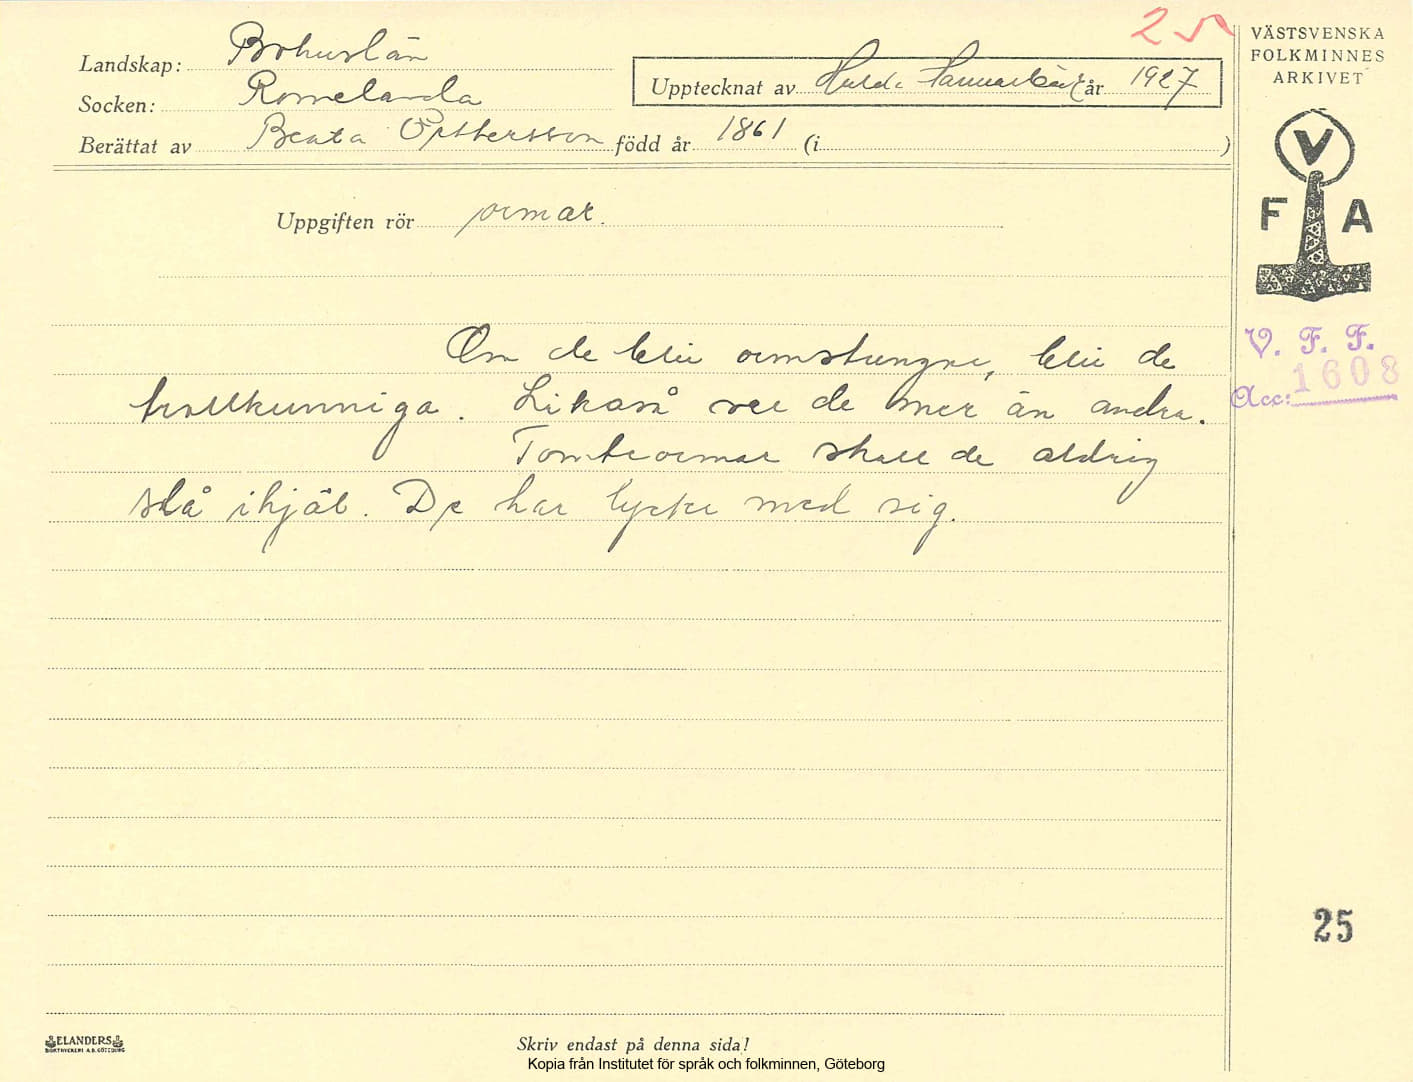 25
VÄSTSVENSKA
FOLKMINNES
ARKIVET
Landskap: Bohuslän
Socken: Romelanda
Upptecknat av Hulda Hammarbäck år 1927
Berättat av Beata Pettersson född år 1861 (i )
V
F A
Uppgiften rör ormar.
V. F. F.
Acc: 1608
Om de bli ormstungne, bli de
trollkunniga. Likaså ser de mer än andra.
Tomteormar skall de aldrig
slå ihjäl. De har lycke med sig.
25
ELANDERS
BOKTRYCKERI A.B. GÖTEBORG
Skriv endast på denna sida!
Kopia från Institutet för språk och folkminnen, Göteborg